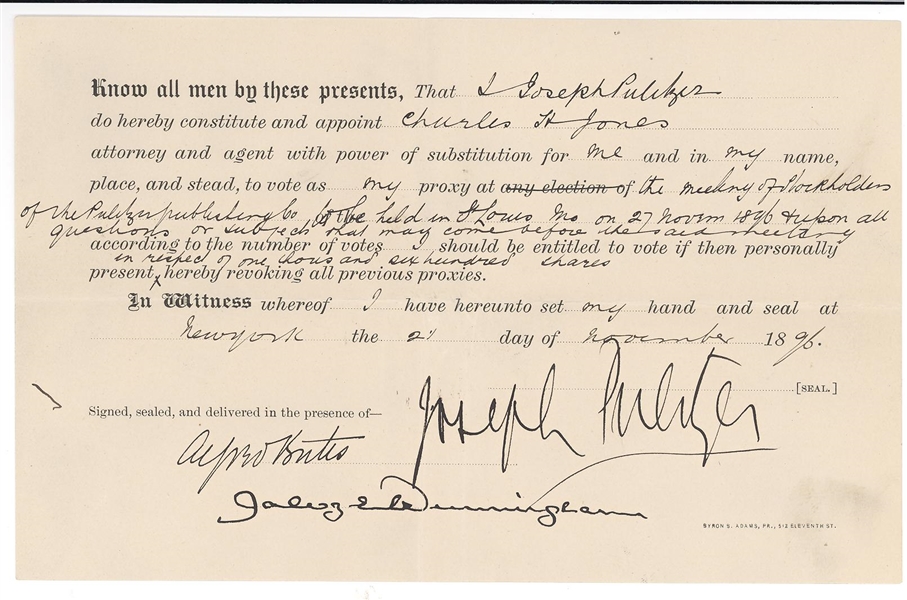 Know all men by these presents, That I Joseph Pulitzer
do hereby constitute and appoint Charles H Jones
attorney and agent with power of substitution for me and in my name,
place, and stead, to vote as my proxy at any election of the meeting of Stockholders
of the Pulitzer publishing Co to be held in St Louis Mo on 27 Novem 1896 & upon all
questions or subjects that may come before the said meeting
according to the number of votes I should be entitled to vote if then personally
in respect of one thousand six hundred shares
present, hereby revoking all previous proxies.
In Witness whereof I have hereunto set my hand and seal at
New york the 21 day of November 1896.
[SEAL.]
Signed, sealed, and delivered in the presence of—
Joseph Pulitzer
Alfred Butes
Dunningham
BYRON S. ADAMS, PR., 512 ELEVENTH ST.